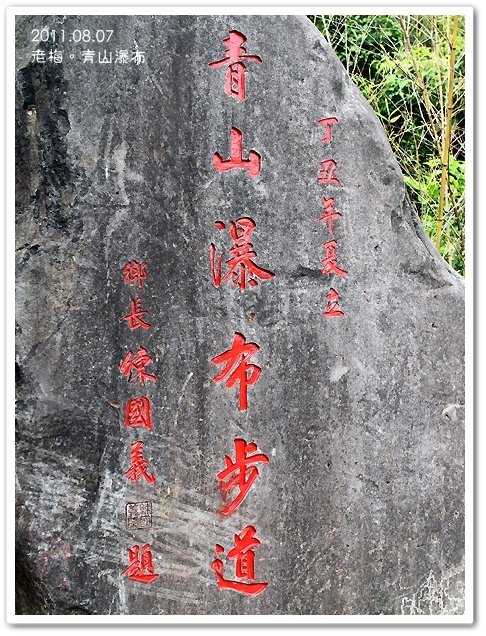 2011.08.07
老梅。青山瀑布
丁丑年夏立
青山瀑布步道
鄉長練國義題